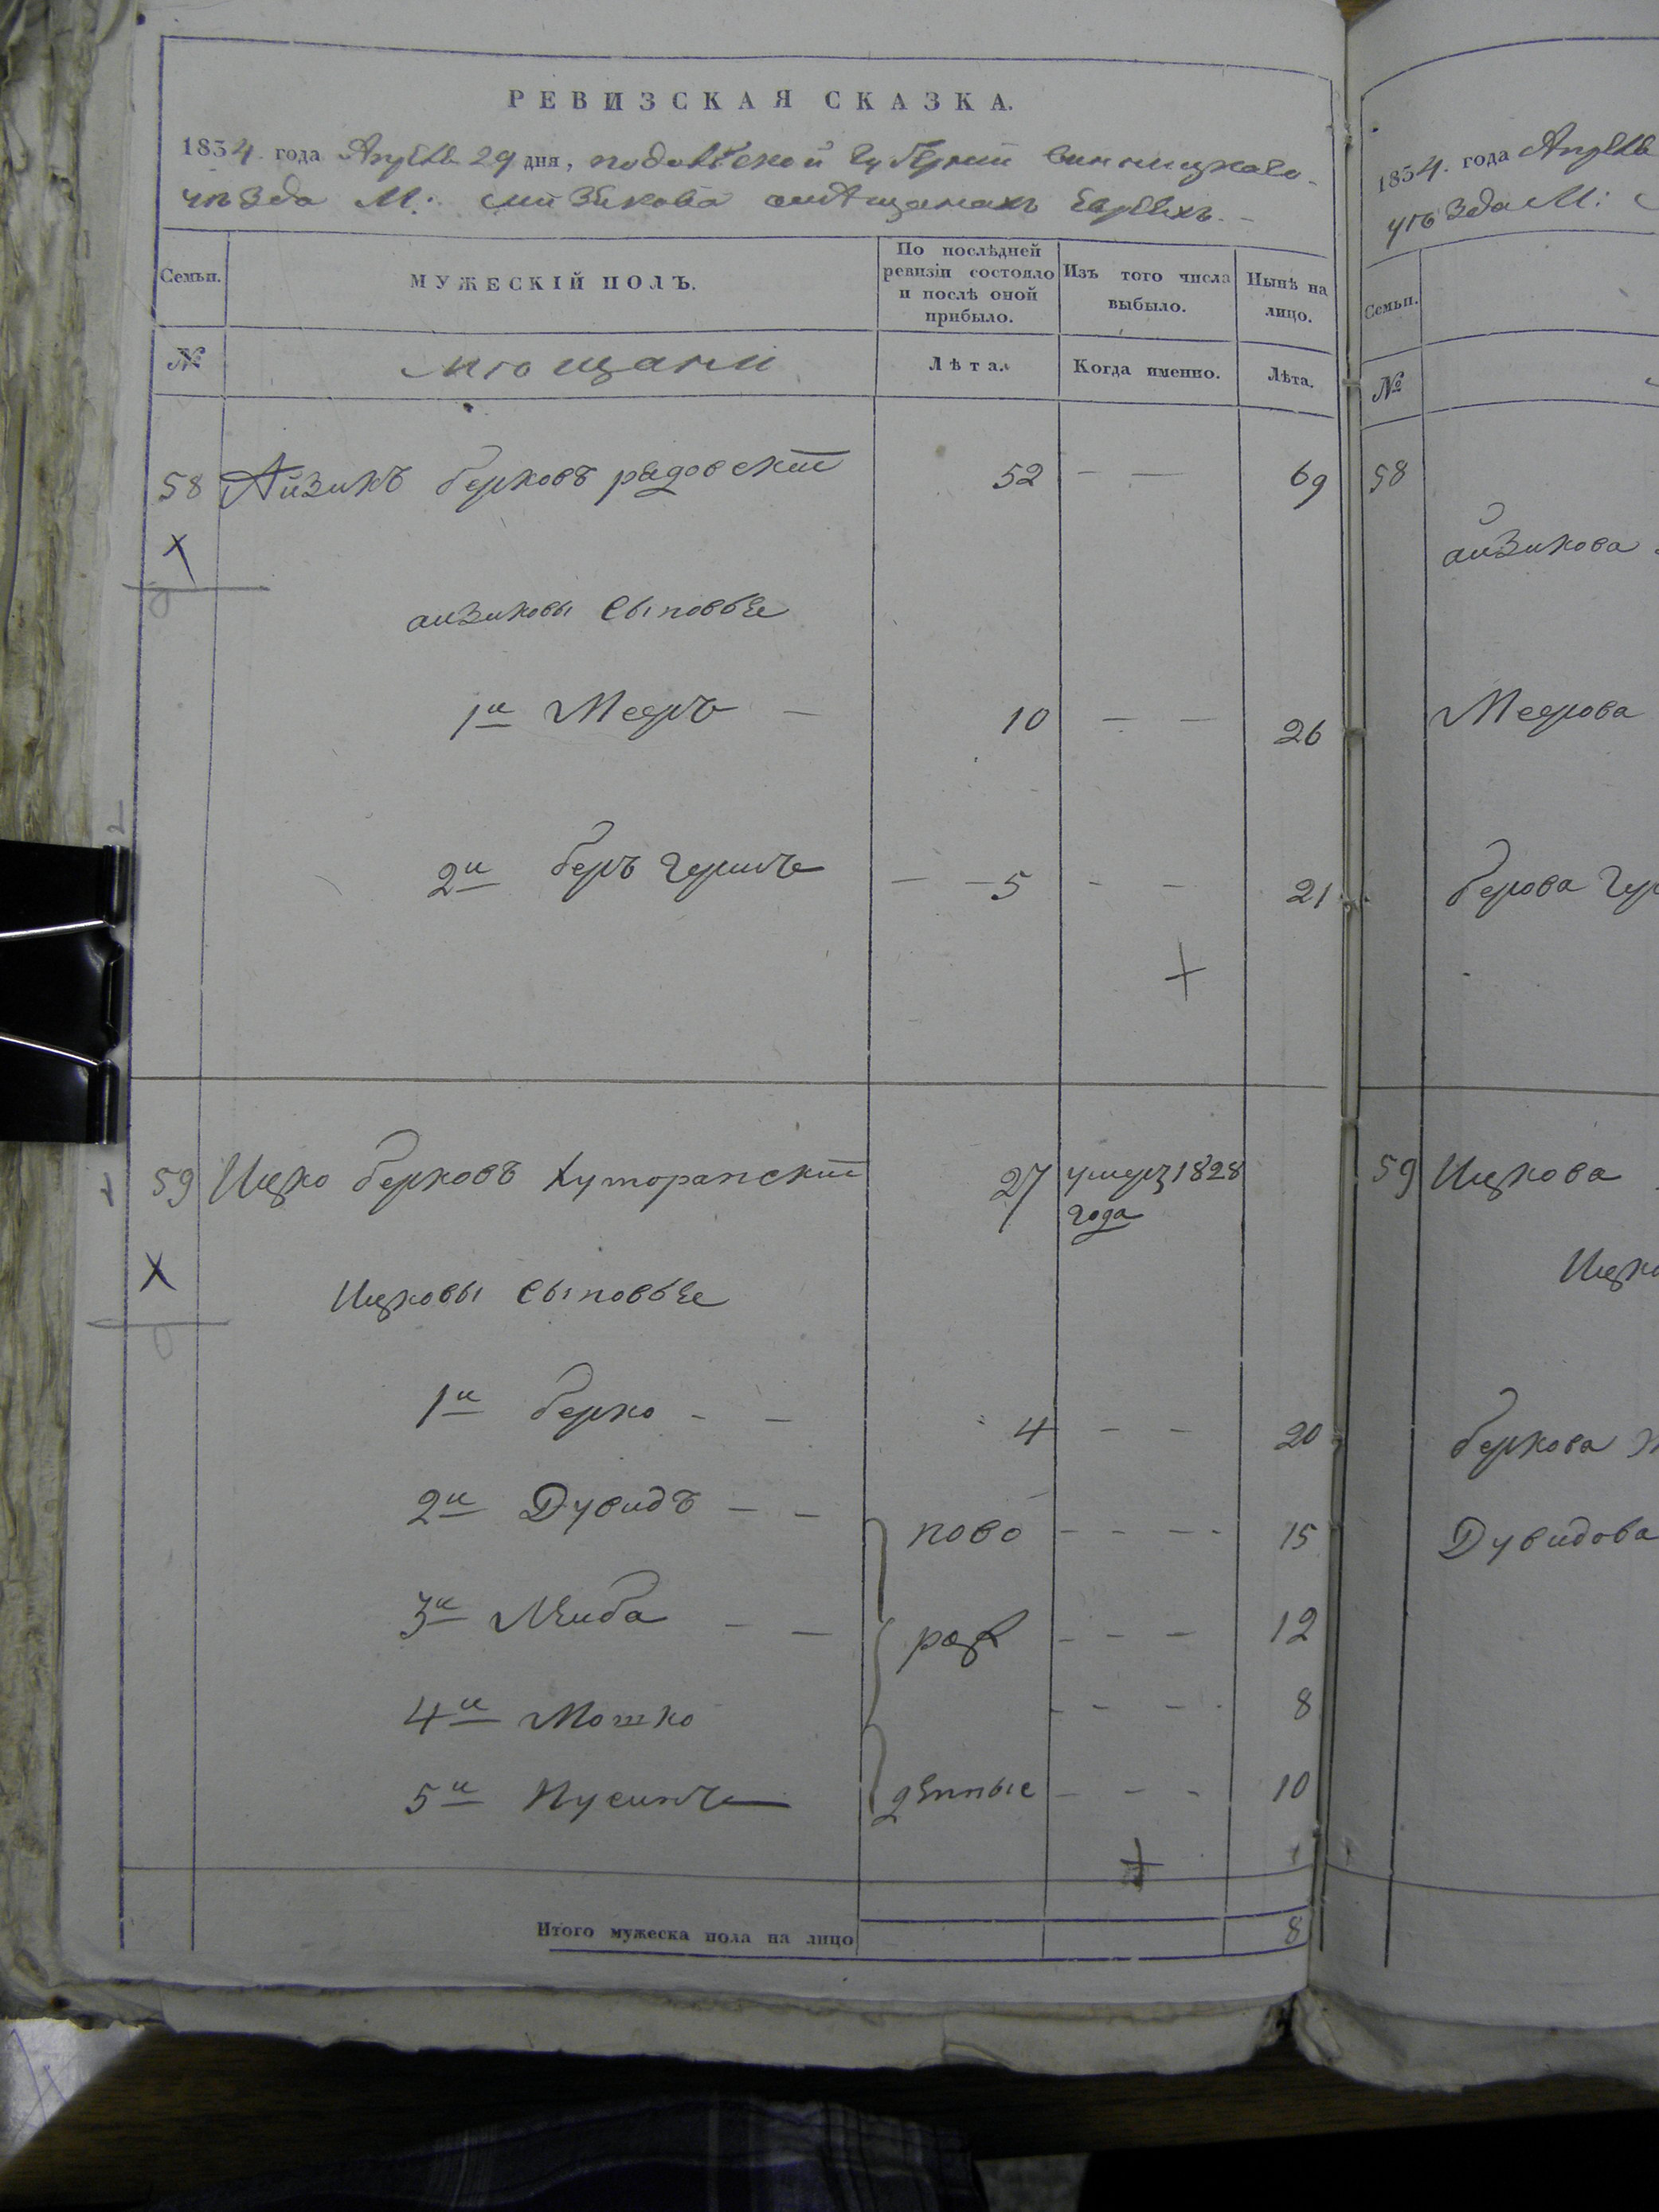 РЕВИЗСКАЯ СКАЗКА.
1834. года Апреля 29 дня, подольской Губернии винницкаго
уезда М: о мещанахъ Евреяхъ.
Семьи.
МУЖЕСКІЙ ПОЛЪ.
По послѣдней ревизіи состояло и послѣ оной прибыло.
Изъ того числа выбыло.
Нынѣ на лицо.
№
мещани
Лѣта.
Когда именно.
Лѣта.
58 Айзикъ берковъ 52 — — 69
X
айзиковы сыновья
1й Мееръ — 10 — — 26
2й беръ Гершъ — — 5 — — 21
+
59 Ицко берковъ Хуторанскій 27 умеръ 1828
года
X
Ицковы сыновья
1й берко — — 4 — — 20
2й Дувидъ — — ново — — — 15
3й Лейба — — раж — — — 12
4й Мошко — — — 8
5й денные — — — 10
+
Итого мужеска пола на лицо 8
1834. года Апреля
уезда М:
Семьи.
№
58
айзикова
Меерова
берова Гер
59 Ицкова
Ицко
беркова
Дувидова